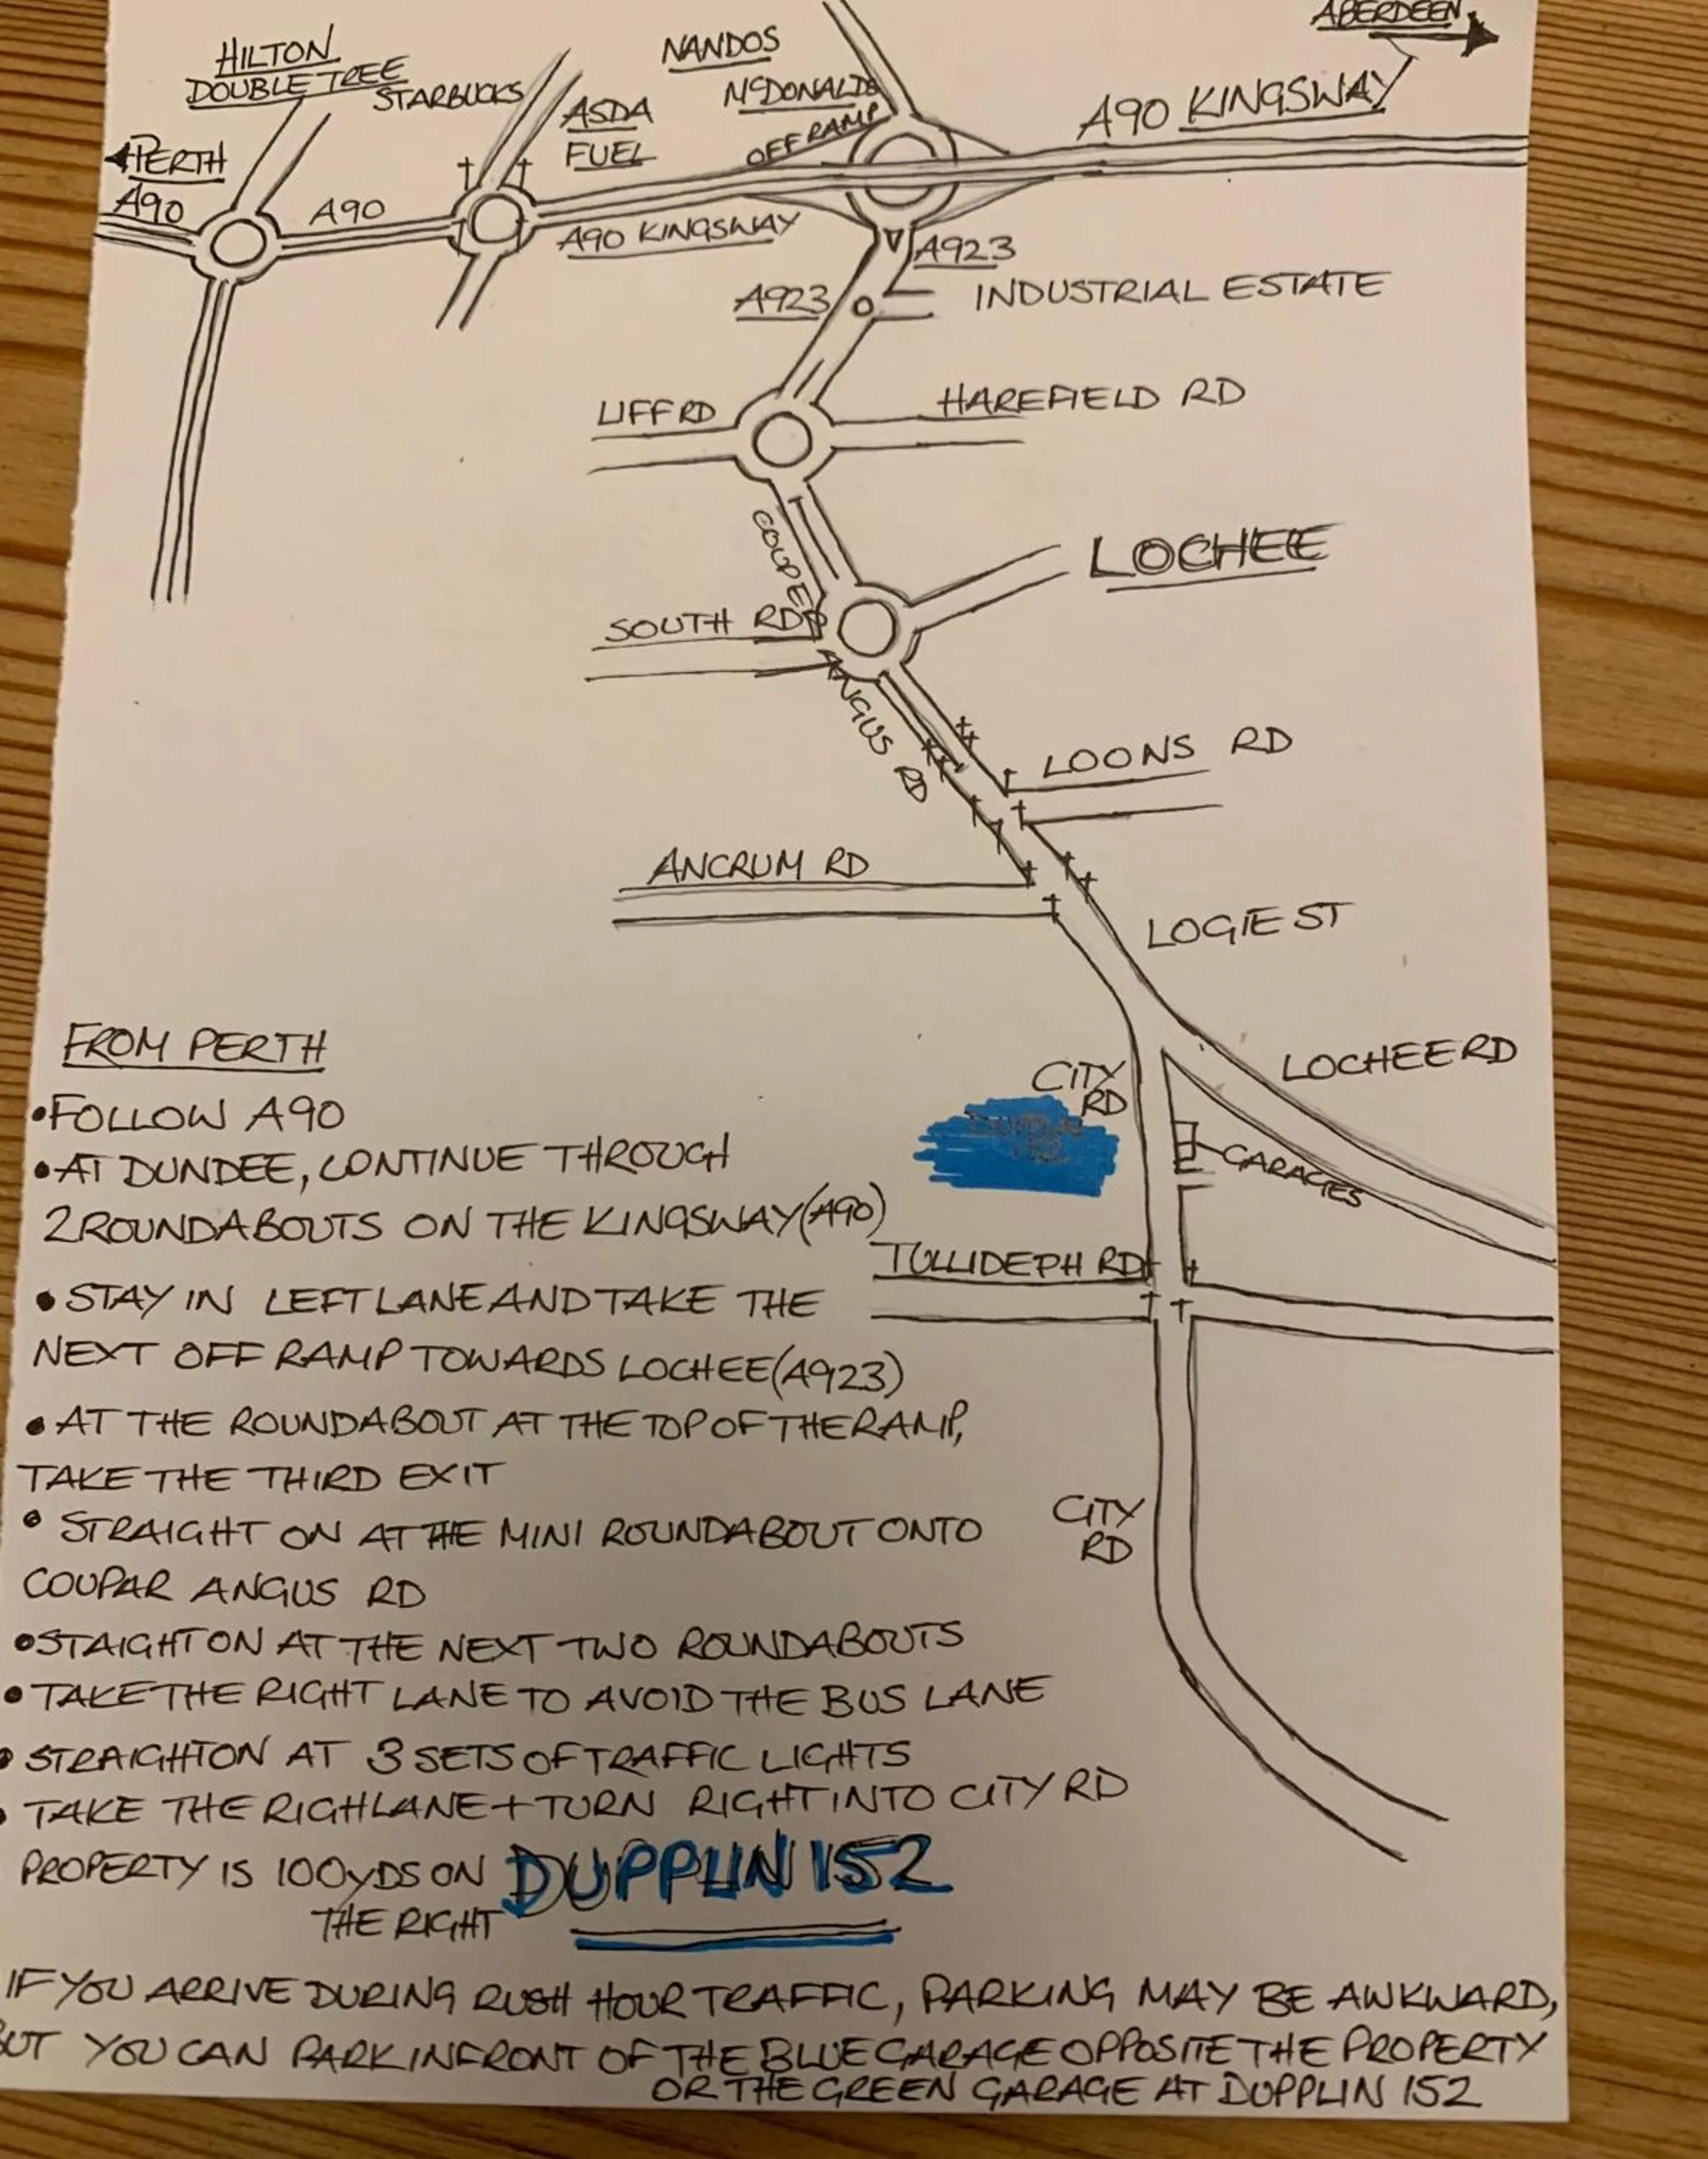 ABERDEEN
HILTON
DOUBLETREE
STARBUCKS
NANDOS
MCDONALDS
ASDA
FUEL
OFF RAMP
A90 KINGSWAY
PERTH
A90
A90
A90 KINGSWAY
A923
A923
INDUSTRIAL ESTATE
LIFF RD
HAREFIELD RD
LOCHEE
COUPER
SOUTH RD
ANGUS RD
LOONS RD
ANCRUM RD
LOGIE ST
LOCHEE RD
CITY
RD
DUPPLIN
152
GARAGES
TULLIDEPH RD
CITY
RD
FROM PERTH
•FOLLOW A90
•AT DUNDEE, CONTINUE THROUGH
2 ROUNDABOUTS ON THE KINGSWAY (A90)
• STAY IN LEFT LANE AND TAKE THE
NEXT OFF RAMP TOWARDS LOCHEE (A923)
• AT THE ROUNDABOUT AT THE TOP OF THE RAMP,
TAKE THE THIRD EXIT
• STRAIGHT ON AT THE MINI ROUNDABOUT ONTO
COUPAR ANGUS RD
•STAIGHT ON AT THE NEXT TWO ROUNDABOUTS
• TAKE THE RIGHT LANE TO AVOID THE BUS LANE
• STRAIGHT ON AT 3 SETS OF TRAFFIC LIGHTS
• TAKE THE RIGH LANE + TURN RIGHT INTO CITY RD
PROPERTY IS 100 YDS ON
THE RIGHT
DUPPLIN 152
IF YOU ARRIVE DURING RUSH HOUR TRAFFIC, PARKING MAY BE AWKWARD,
BUT YOU CAN PARK INFRONT OF THE BLUE GARAGE OPPOSITE THE PROPERTY
OR THE GREEN GARAGE AT DUPPLIN 152